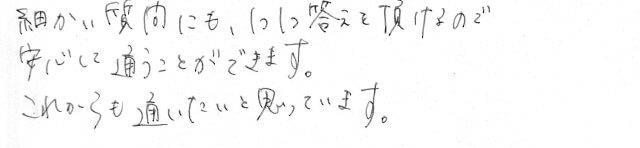 細かい質問にも、1つ1つ答えを頂けるので
安心して通うことができます。
これからも通いたいと思っています。